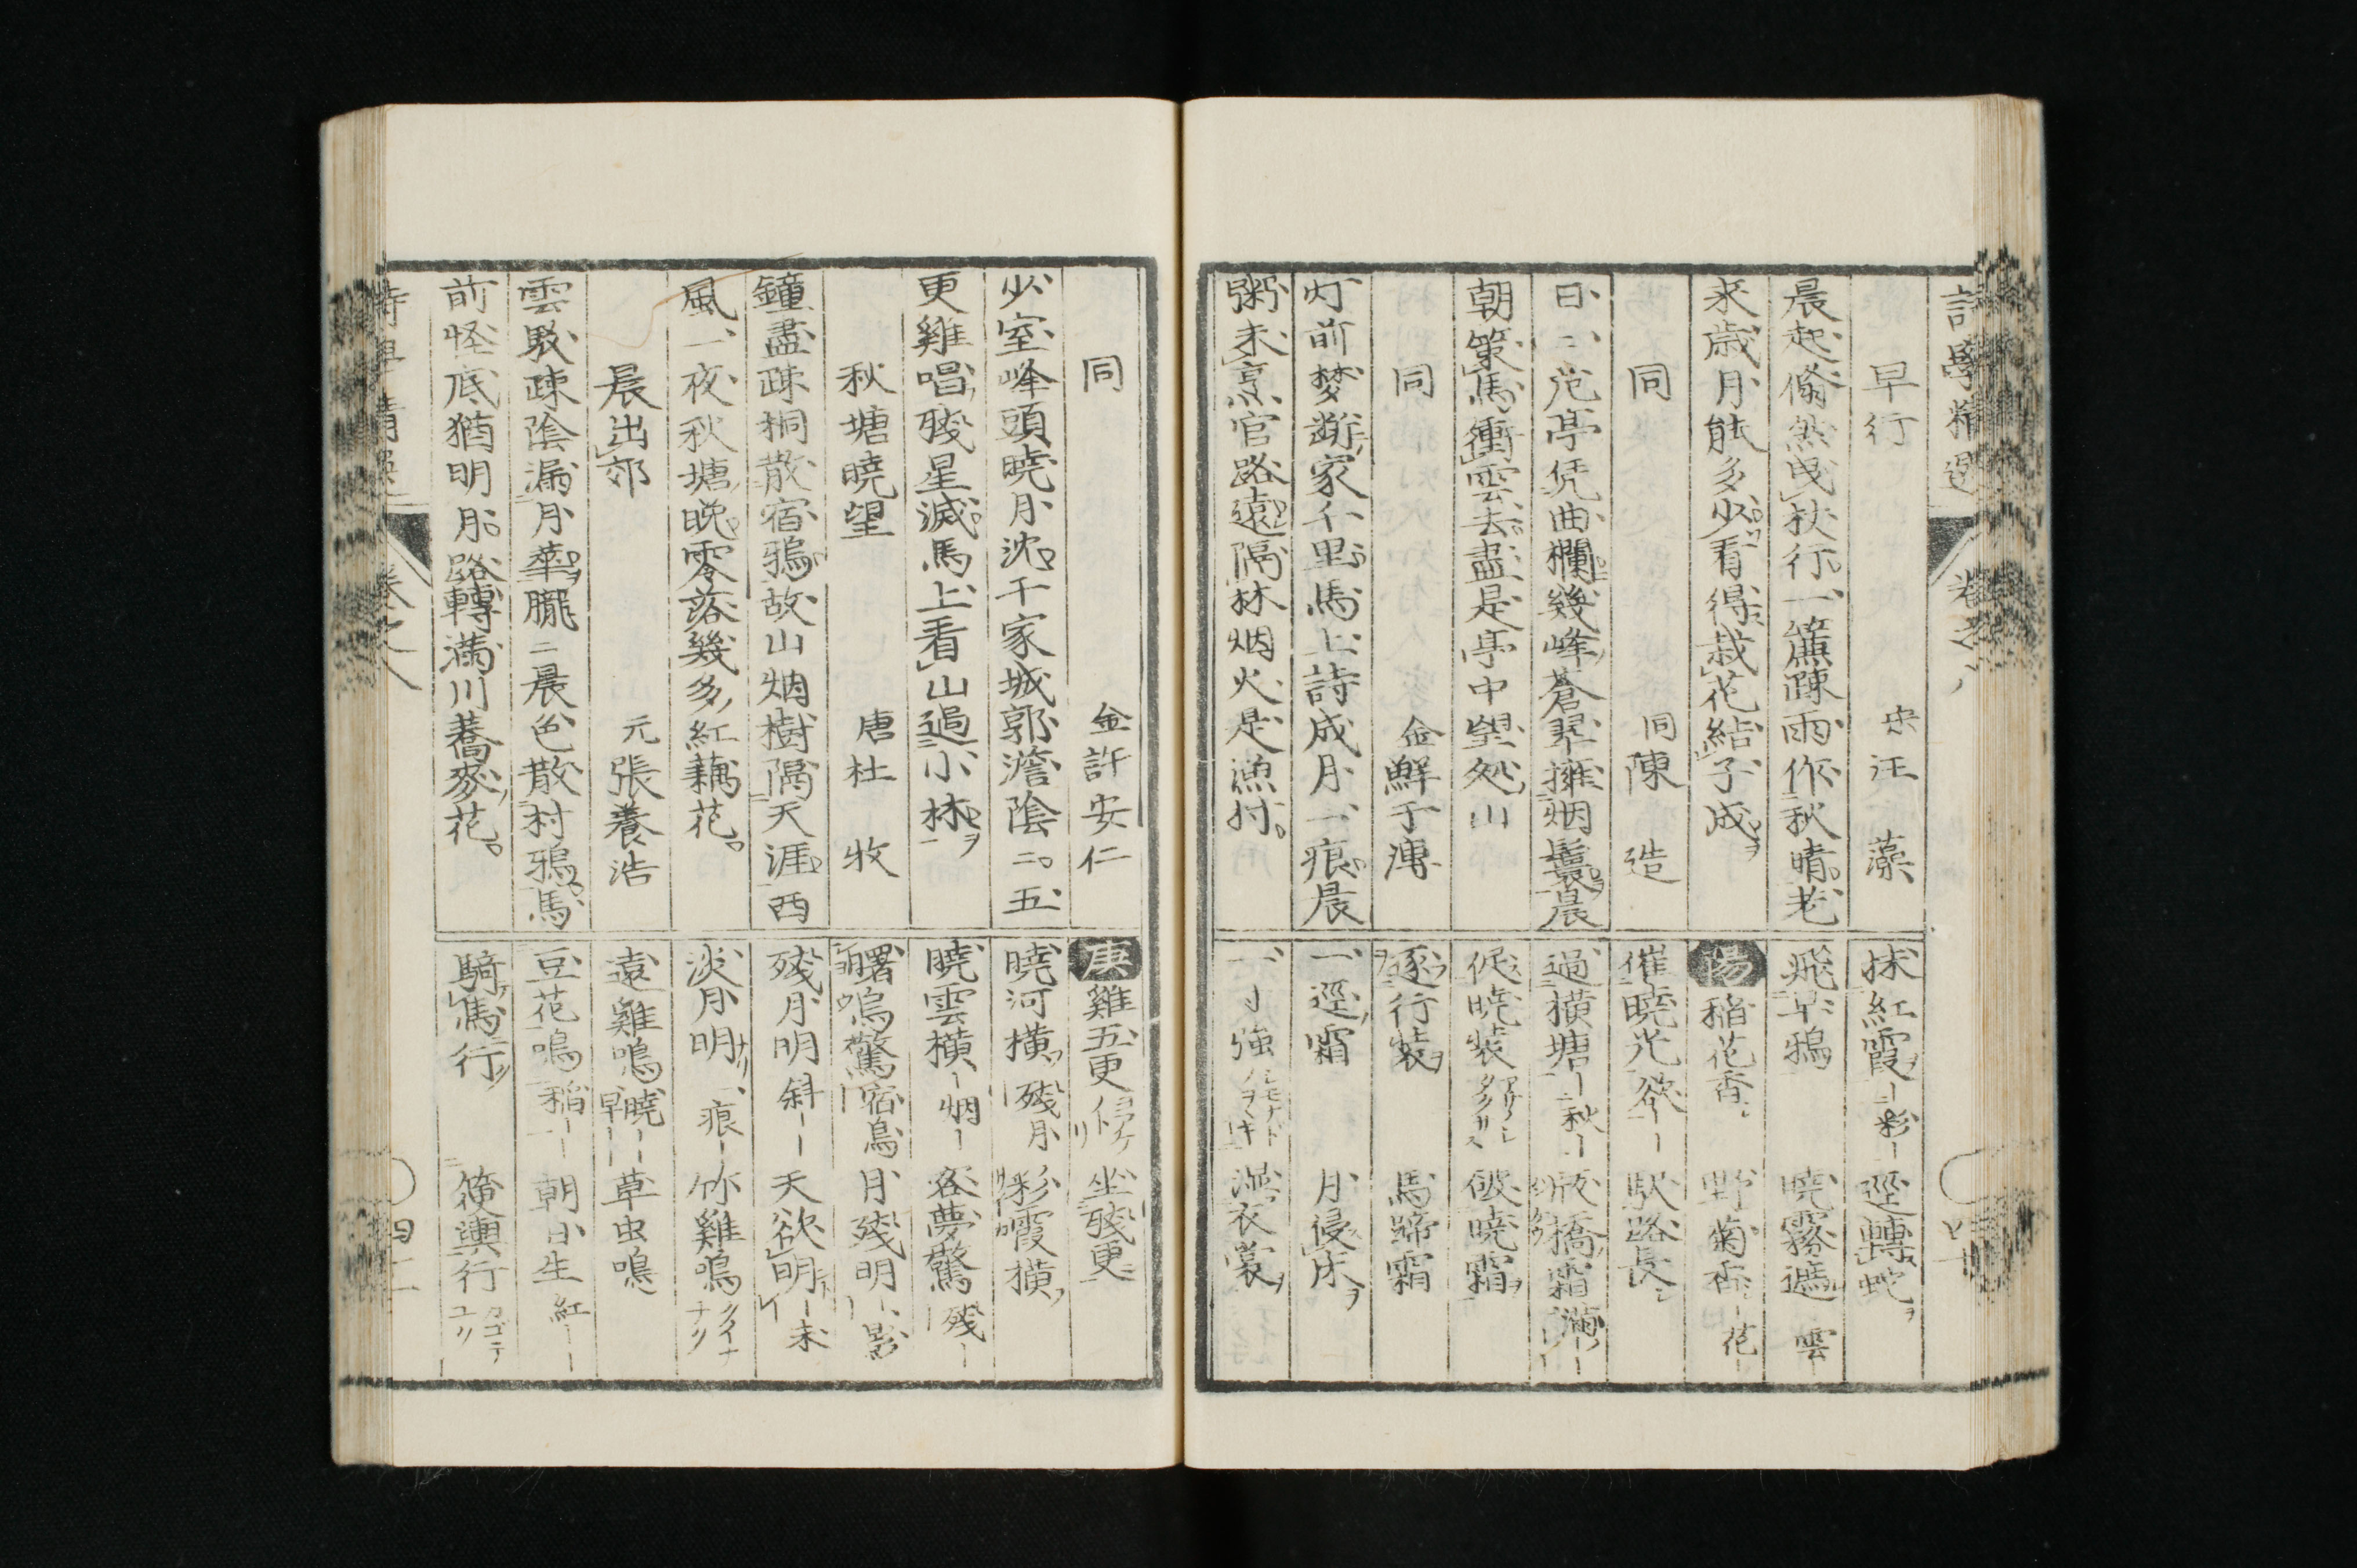 早行　宋汪藻
晨起翛然曳杖行一簾疎雨作秋晴老
来歳月能多少看得栽花結子成
同　同陳造
日日危亭凭曲欄幾峰蒼翠擁烟鬟晨
朝策馬衝雲去盡是亭中望処山
同　金鮮于溥
灯前夢断家千里馬上詩成月一痕晨
粥未烹官路遠隔林烟火是漁村
抹紅霞 彩 逕轉蛇
飛早鴉 暁霧遮 雲
陽 稲花香 野菊香 花
催暁光 欲 駅路長
過横塘 秋 板橋霜 満
促暁装 破暁霜
逐行装 馬蹄霜
一逕霜 月侵床
強 湿衣裳
同　金許安仁
少室峰頭暁月沈千家城郭澹陰二五
更雞唱殘星滅馬上看山過小林
秋塘曉望　唐杜牧
鐘盡疎桐散宿鴉故山烟樹隔天涯西
風一夜秋塘晩零落幾多紅藕花
晨出郊　元張養浩
雲駁疎陰漏月華朧二晨色散村鴉馬
前怪底猶明月路轉満川蕎麥花
庚 雞五更 坐殘更
曉河横 残月 彩霞横
曉雲横 烟 客夢驚 残
曙嗚驚宿鳥 月残明 影
残月明 斜 天欲明 未
淡月明 痕 竹雞鳴
遠雞鳴 曉 早 草虫鳴
豆花鳴 稲 朝日生 紅
騎馬行 筱輿行 カゴテユク
詩早 卷之八